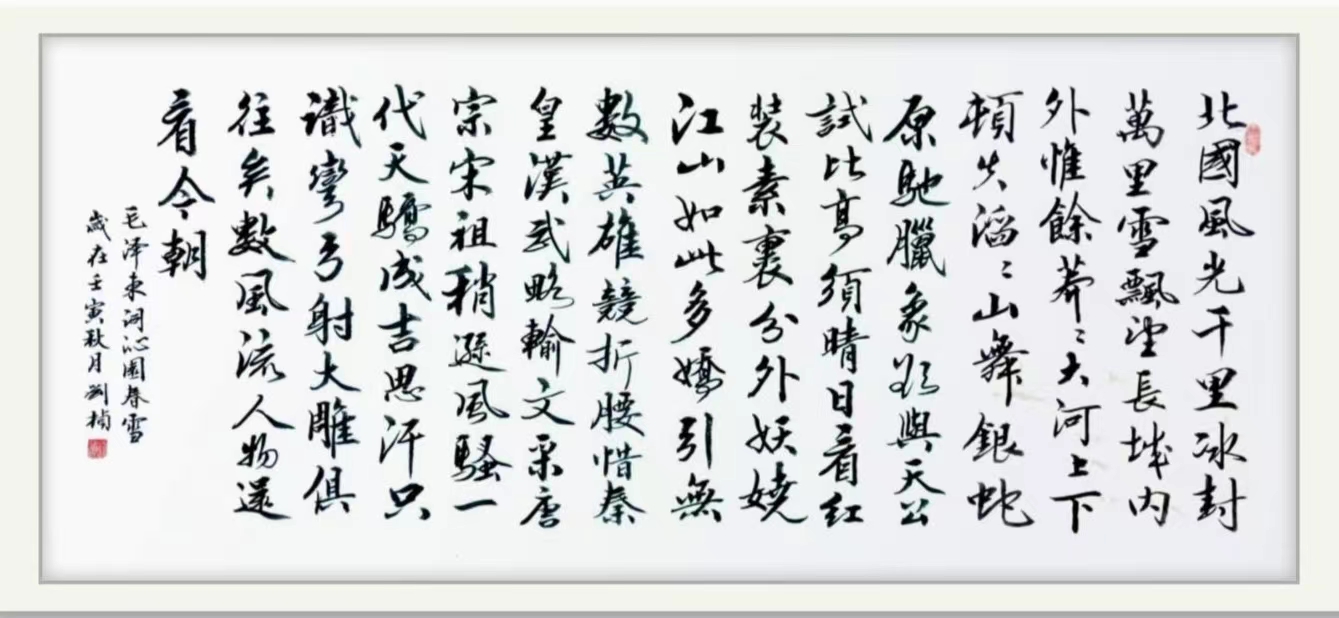 北國風光千里冰封
萬里雪飄望長城内
外惟餘莽〻大河上下
頓失滔〻山舞銀蛇
原馳臘象欲與天公
試比高須晴日看红
装素裹分外妖嬈
江山如此多嬌引無
數英雄競折腰惜秦
皇漢武略輸文采唐
宗宋祖稍遜風騷一
代天驕成吉思汗只
識彎弓射大雕俱
往矣數風流人物還
看今朝
毛泽東词沁園春雪
歲在壬寅秋月劉楨